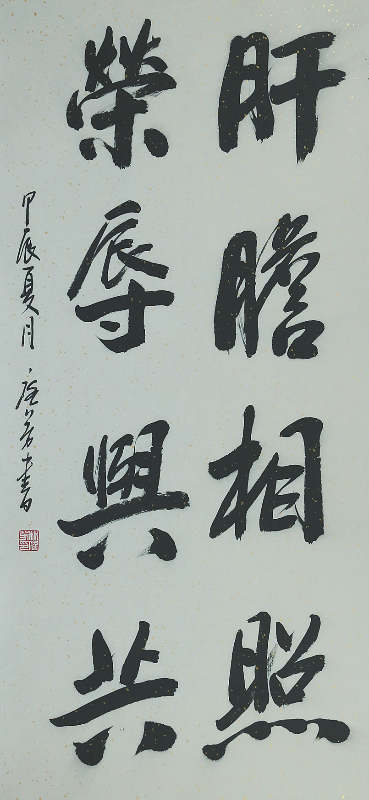 肝膽相照
榮辱興共
甲辰夏月
書